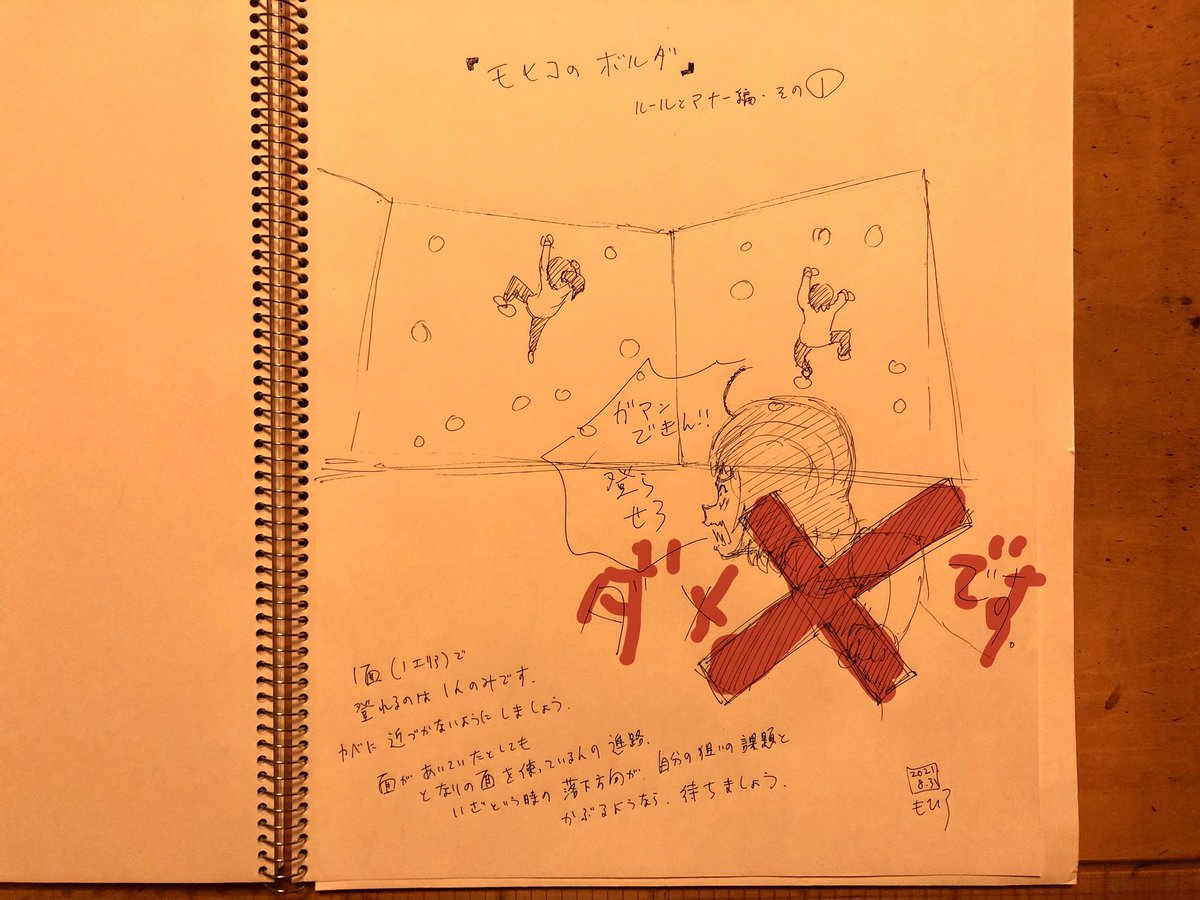 『モヒコの ボルダ』
ルールとマナー編・その①
ガマン
できん!!
登ら
せろ
ダメです。
1面(1エリア)で
登れるのは1人のみです。
カベに近づかないようにしましょう。
面があいていたとしても
となりの面を使っている人の進路、
いざという時の落下方向が、自分の狙いの課題と
かぶるようなら、待ちましょう。
2021
8.31
もひ